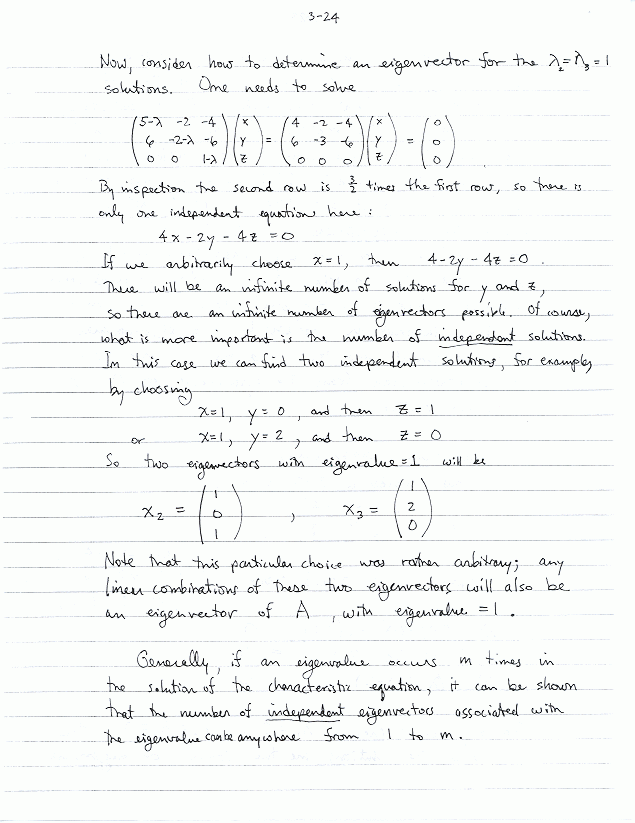 3-24
Now, consider how to determine an eigenvector for the λ₂=λ₃=1
solutions. One needs to solve
(5-λ -2 -4) (x) = (4 -2 -4) (x) = (0)
(6 -2-λ -6) (y) (6 -3 -6) (y) (0)
(0 0 1-λ) (z) (0 0 0) (z) (0)
By inspection the second row is 3/2 times the first row, so there is
only one independent equation here:
4x - 2y - 4z = 0
If we arbitrarily choose x=1, then 4-2y-4z=0.
There will be an infinite number of solutions for y and z,
so there are an infinite number of eigenvectors possible. Of course,
what is more important is the number of independent solutions.
In this case we can find two independent solutions, for example,
by choosing
x=1, y=0, and then z=1
or x=1, y=2, and then z=0
So two eigenvectors with eigenvalue=1 will be
x₂ = (1) , x₃ = (1)
(0) (2)
(1) (0)
Note that this particular choice was rather arbitrary; any
linear combinations of these two eigenvectors will also be
an eigenvector of A, with eigenvalue = 1.
Generally, if an eigenvalue occurs m times in
the solution of the characteristic equation, it can be shown
that the number of independent eigenvectors associated with
the eigenvalue can be anywhere from 1 to m.